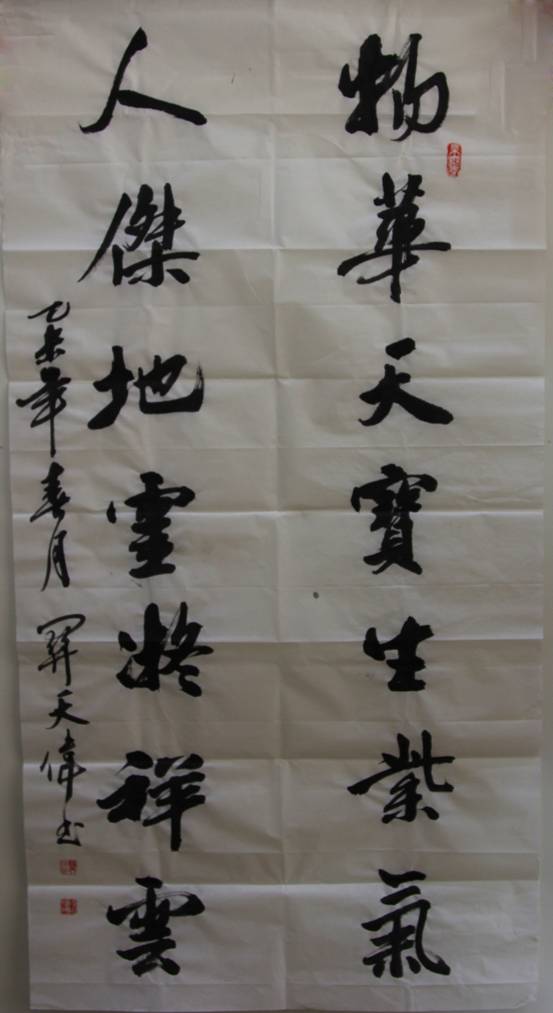 物華天寶生紫氣
人傑地靈凝祥雲
乙未年春月關天偉书